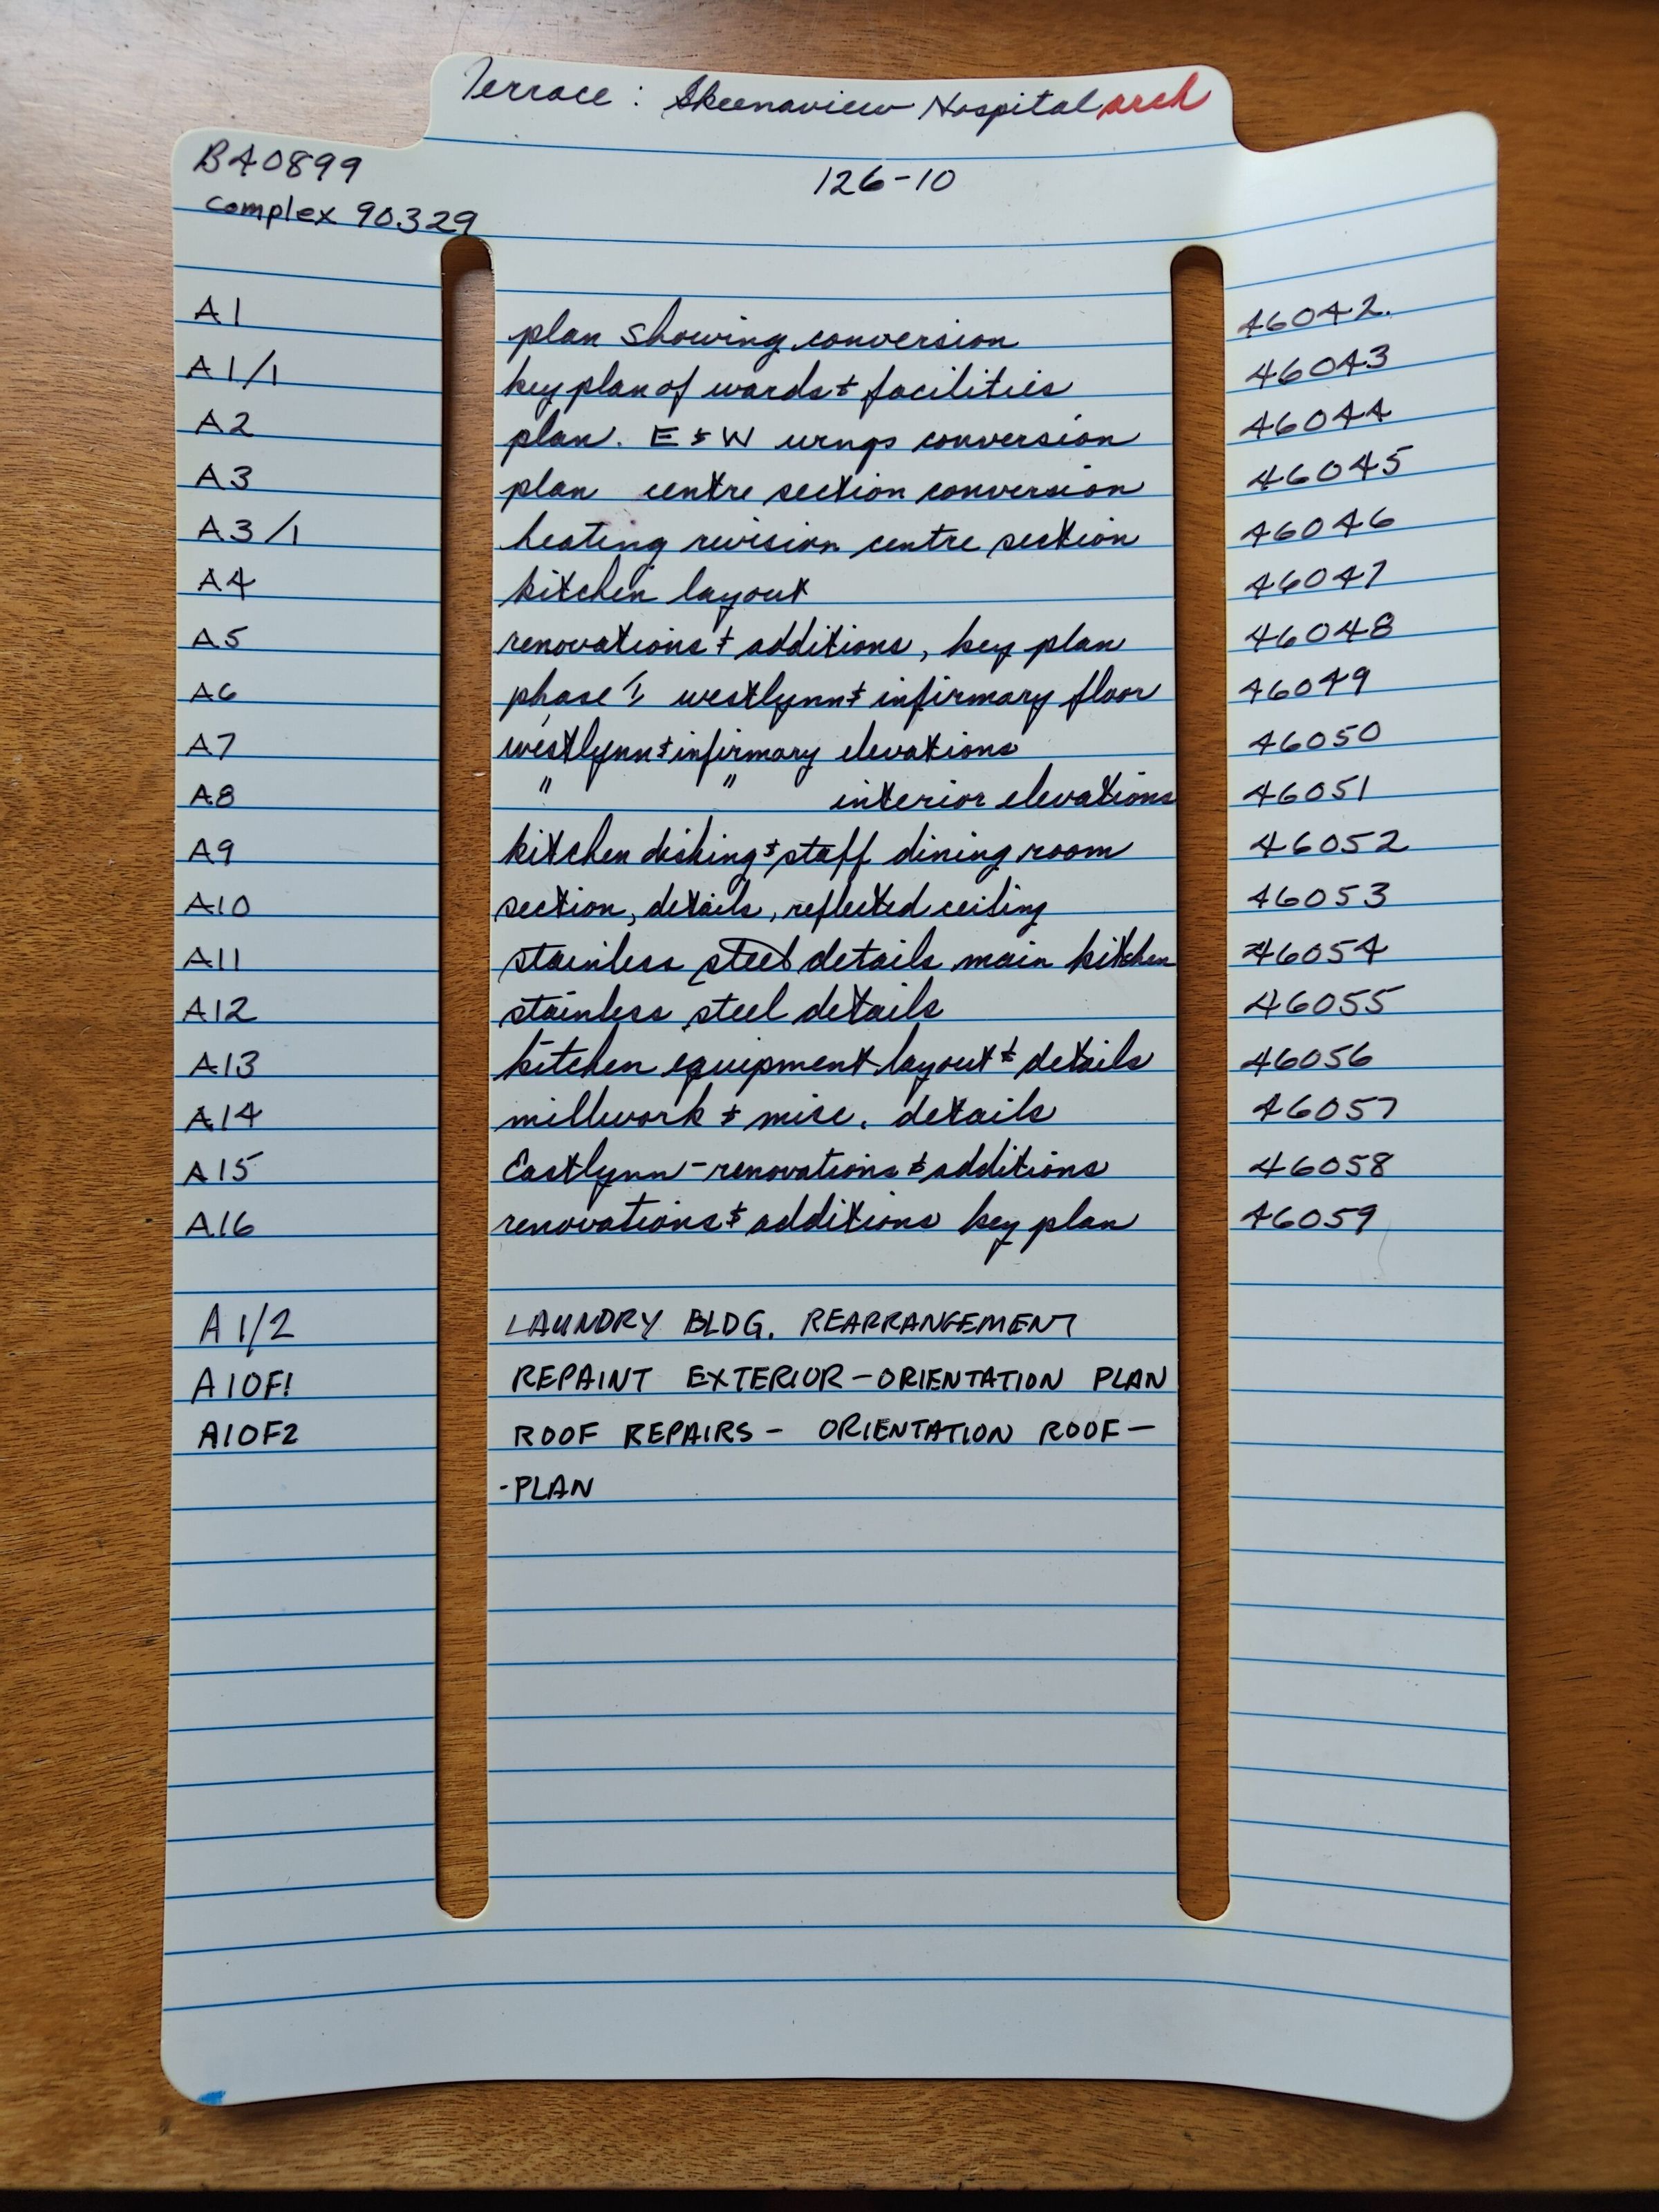 Terrace: Skeenaview Hospital arch
B40899
126-10
complex 90329
A1 plan showing conversion 46042.
A1/1 key plan of wards & facilities 46043
A2 plan. E & W wings conversion 46044
A3 plan centre section conversion 46045
A3/1 heating revision centre section 46046
A4 kitchen layout 46047
A5 renovations & additions, key plan 46048
A6 phase 1, westlynn & infirmary floor 46049
A7 westlynn & infirmary elevations 46050
A8 " " interior elevations 46051
A9 kitchen dishing & staff dining room 46052
A10 section, details, reflected ceiling 46053
A11 stainless steel details main kitchen 46054
A12 stainless steel details 46055
A13 kitchen equipment layout & details 46056
A14 millwork & misc. details 46057
A15 Eastlynn - renovations & additions 46058
A16 renovations & additions key plan 46059
A1/2 LAUNDRY BLDG. REARRANGEMENT
A1OF1 REPAINT EXTERIOR - ORIENTATION PLAN
A1OF2 ROOF REPAIRS - ORIENTATION ROOF -
- PLAN